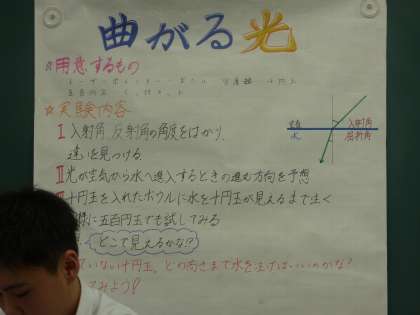 曲がる光
☆用意するもの
☆実験内容
I 入射角 反射角の角度をはかり、
違いを見つける
II 光が空気から水へ進入するときの進む方向を予想
十円玉を入れたボウルに水を十円玉が見えるまで注ぐ
に五百円玉でも試してみる
どこで見えるかな!?
いない十円玉。どの高さまで水を注げばいいのかな?
てみよう!
空気
水
入射角
屈折角